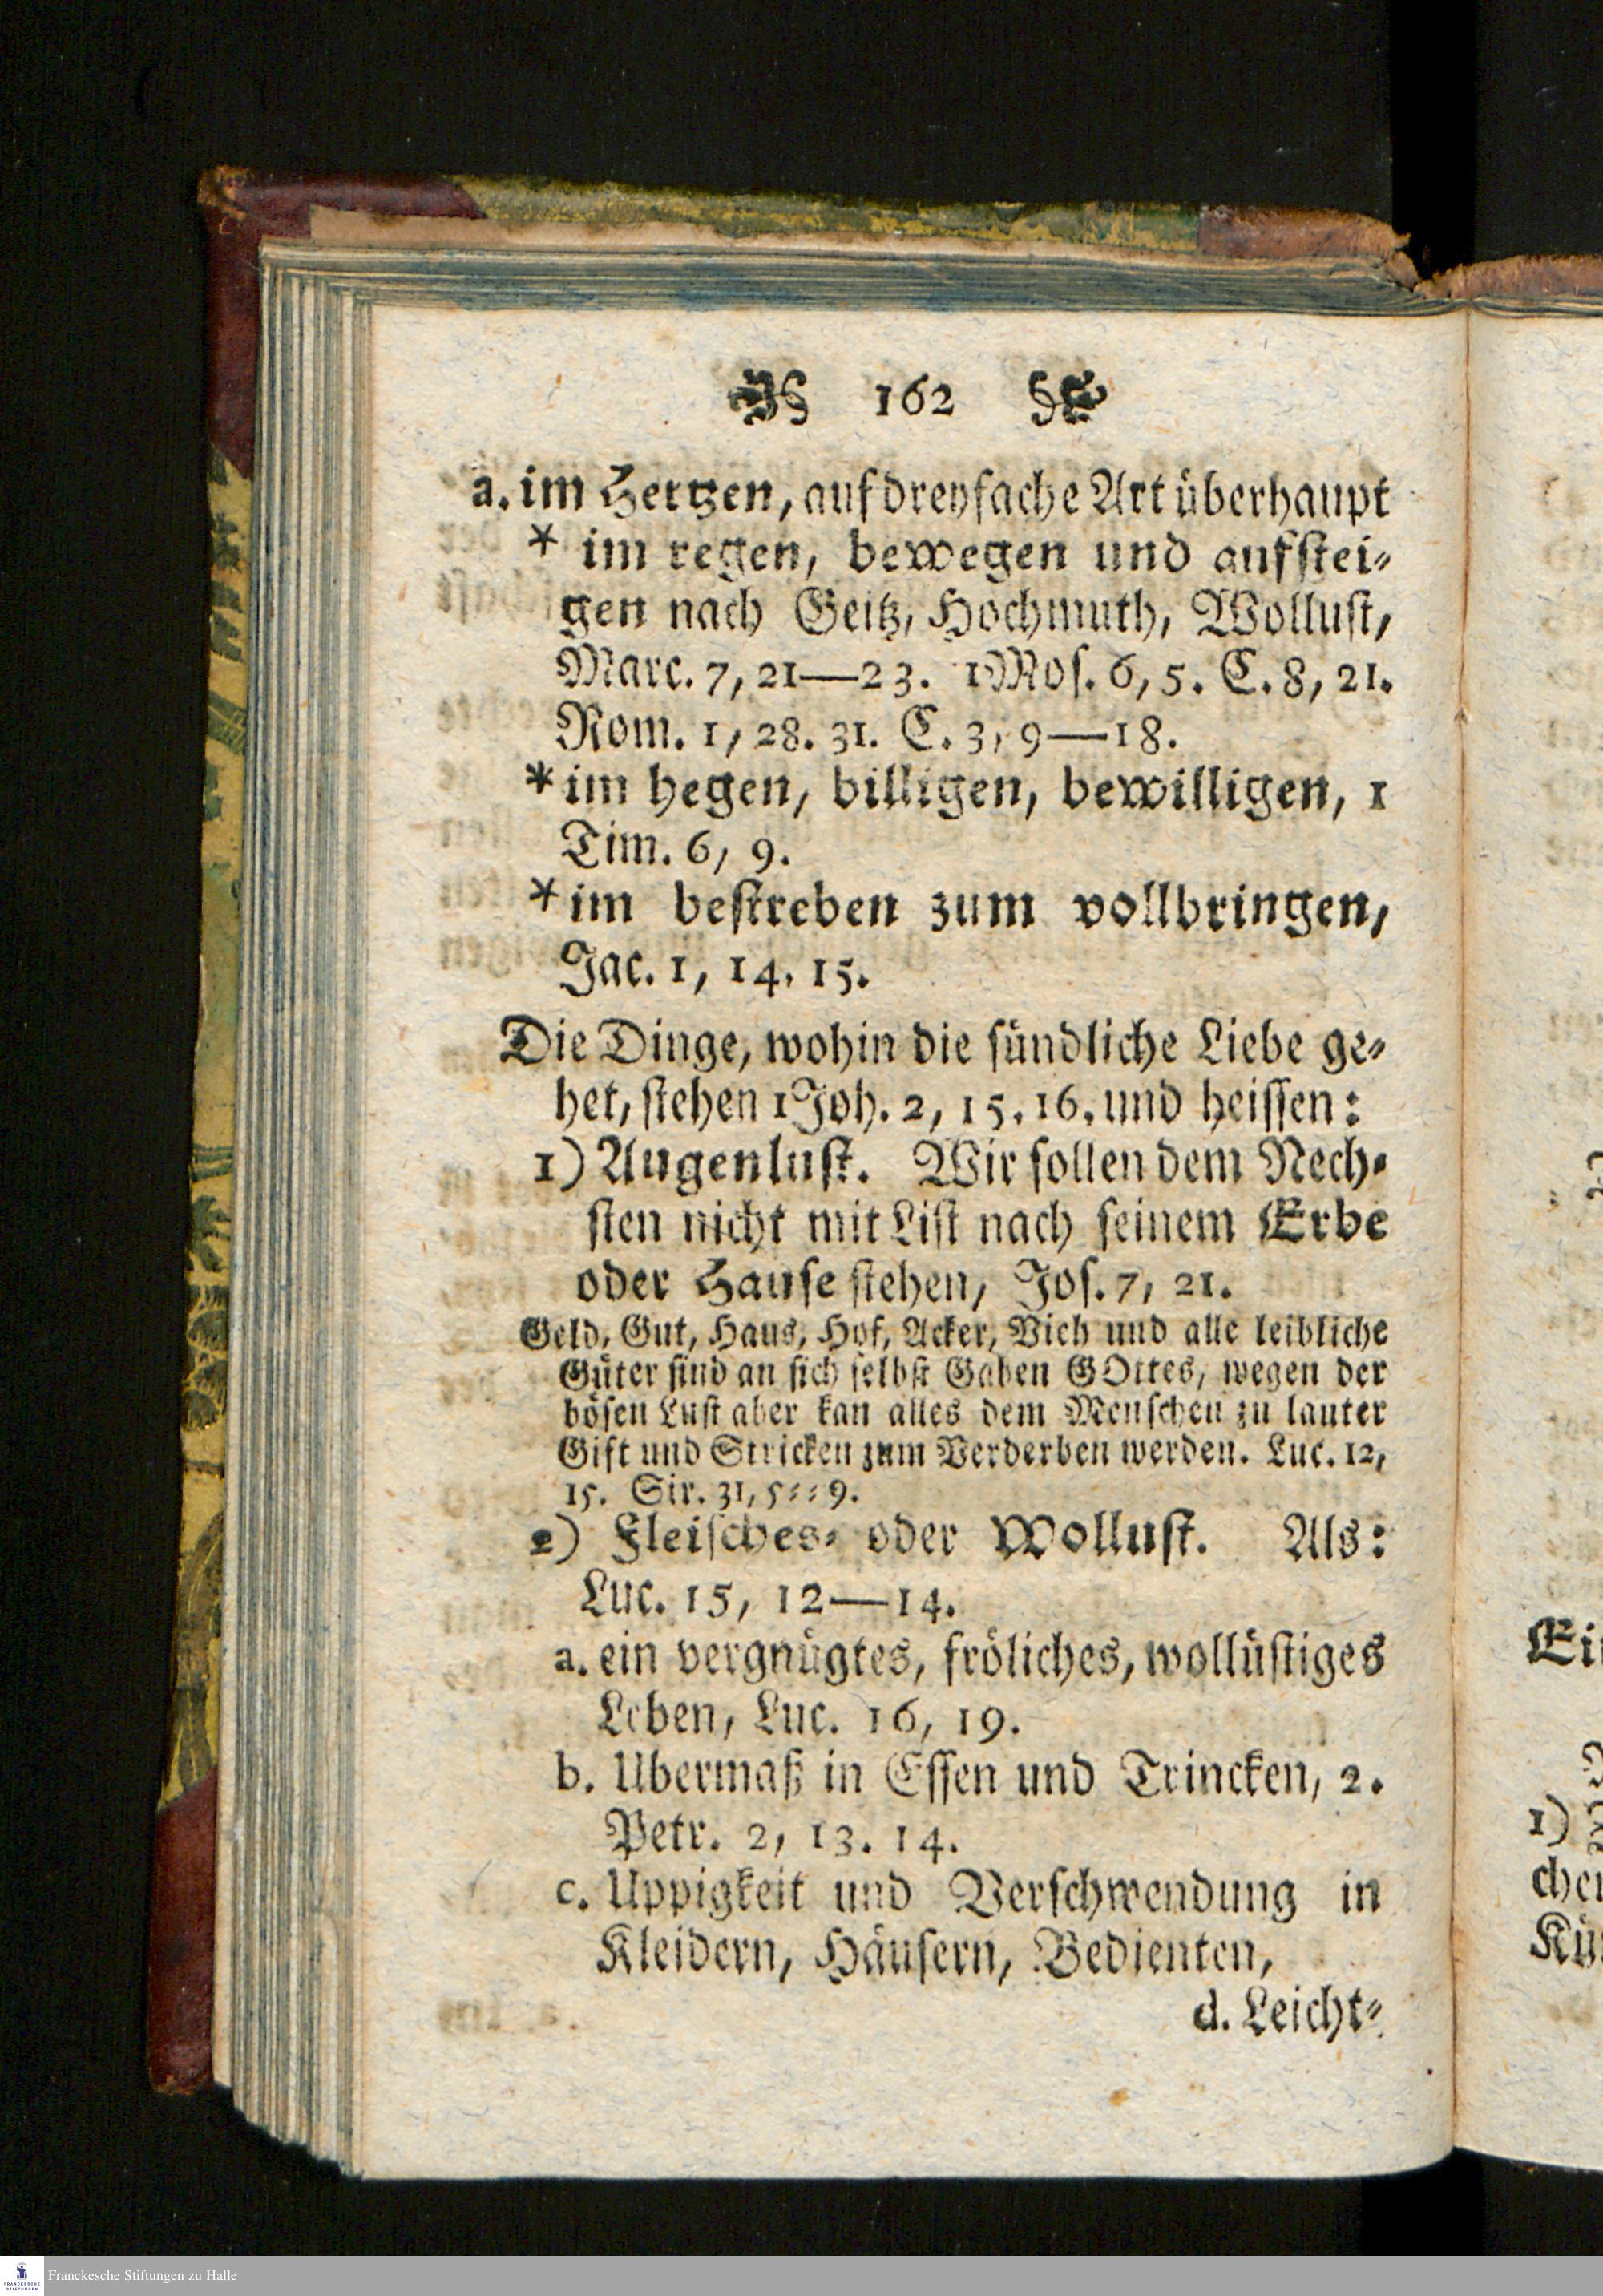 162
a. im Hertzen, auf dreyfache Art überhaupt
* im regen, bewegen und aufstei-
gen nach Geitz, Hochmuth, Wollust,
Marc. 7, 21—23. 1Mos. 6, 5. C. 8, 21.
Rom. 1, 28. 31. C. 3, 9—18.
* im hegen, billigen, bewilligen, 1
Tim. 6, 9.
* im bestreben zum vollbringen,
Jac. 1, 14. 15.
Die Dinge, wohin die sündliche Liebe ge-
het, stehen 1Joh. 2, 15. 16. und heissen:
1) Augenlust. Wir sollen dem Nech-
sten nicht mit List nach seinem Erbe
oder Hause stehen, Jos. 7, 21.
Geld, Gut, Haus, Hof, Acker, Vieh und alle leibliche
Güter sind an sich selbst Gaben GOttes, wegen der
bösen Lust aber kan alles dem Menschen zu lauter
Gift und Stricken zum Verderben werden. Luc. 12,
15. Sir. 31, 5--9.
2) Fleisches- oder Wollust. Als:
Luc. 15, 12—14.
a. ein vergnügtes, fröliches, wollüstiges
Leben, Luc. 16, 19.
b. Ubermaß in Essen und Trincken, 2.
Petr. 2, 13. 14.
c. Uppigkeit und Verschwendung in
Kleidern, Häusern, Bedienten,
d. Leicht-
Ei
1)
che
Kü
Franckesche Stiftungen zu Halle
FRANCKESCHE
STIFTUNGEN